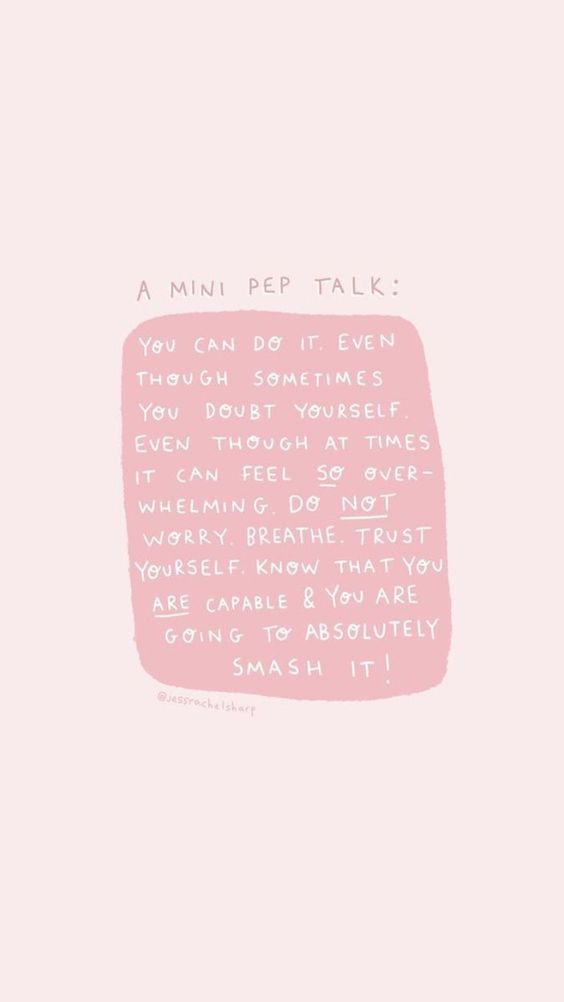 A MINI PEP TALK:
YOU CAN DO IT. EVEN
THOUGH SOMETIMES
YOU DOUBT YOURSELF.
EVEN THOUGH AT TIMES
IT CAN FEEL SO OVER-
WHELMING. DO NOT
WORRY. BREATHE. TRUST
YOURSELF. KNOW THAT YOU
ARE CAPABLE & YOU ARE
GOING TO ABSOLUTELY
SMASH IT!
@jessrachelsharp